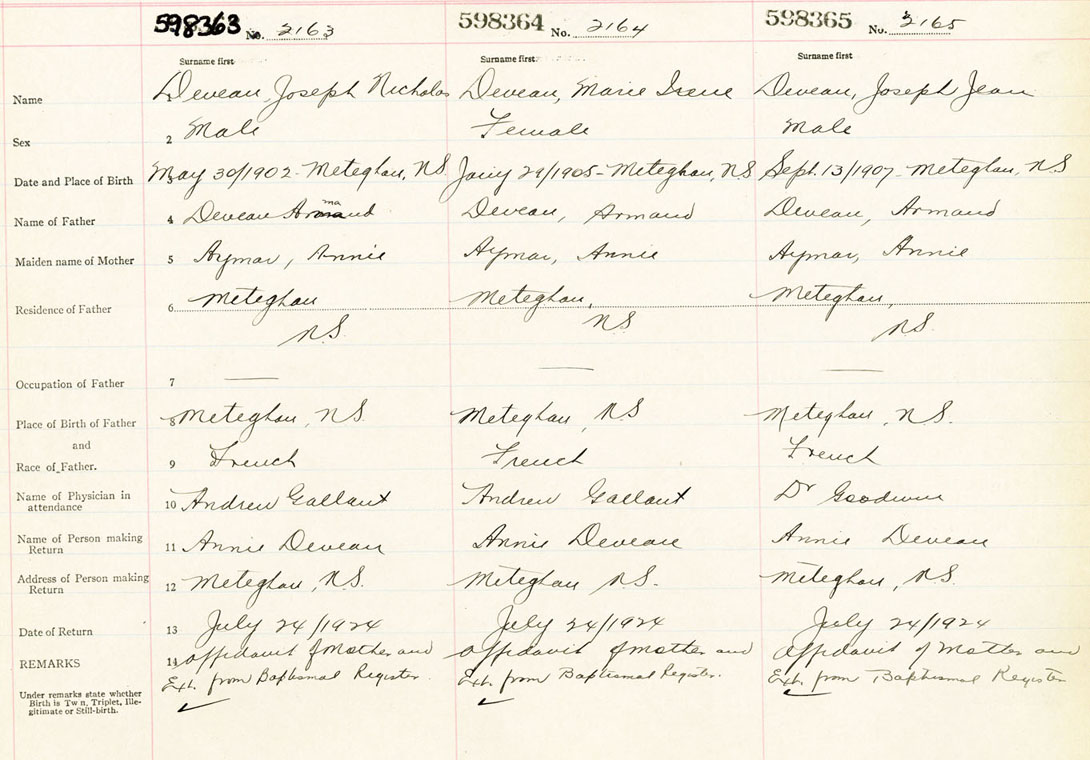 598363 No. 2163 598364 No. 2164 598365 No. 2165
Surname first Surname first Surname first
Name Deveau, Joseph Nicholas Deveau, Marie Irene Deveau, Joseph Jean
Sex 2 Male Female Male
Date and Place of Birth May 30/1902 - Meteghan, N.S. Jany 29/1905 - Meteghan, N.S. Sept. 13/1907 - Meteghan, N.S.
ma
Name of Father 4 Deveau Armand Deveau, Armand Deveau, Armand
Maiden name of Mother 5 Aymar, Annie Aymar, Annie Aymar, Annie
Residence of Father 6 Meteghan Meteghan, Meteghan,
N.S. N.S. N.S.
Occupation of Father 7 — — —
Place of Birth of Father 8 Meteghan, N.S. Meteghan, N.S. Meteghan, N.S.
and
Race of Father. 9 French French French
Name of Physician in
attendance 10 Andrew Gallant Andrew Gallant Dr Goodwin
Name of Person making
Return 11 Annie Deveau Annie Deveau Annie Deveau
Address of Person making
Return 12 Meteghan, N.S. Meteghan N.S. Meteghan, N.S.
Date of Return 13 July 24/1924 July 24/1924 July 24/1924
REMARKS 14 Affidavit of Mother and Affidavit of Mother and Affidavit of Mother and
Ext. from Baptismal Register. Ext. from Baptismal Register. Ext. from Baptismal Register
Under remarks state whether
Birth is Tw n, Triplet, Ille-
gitimate or Still-birth.